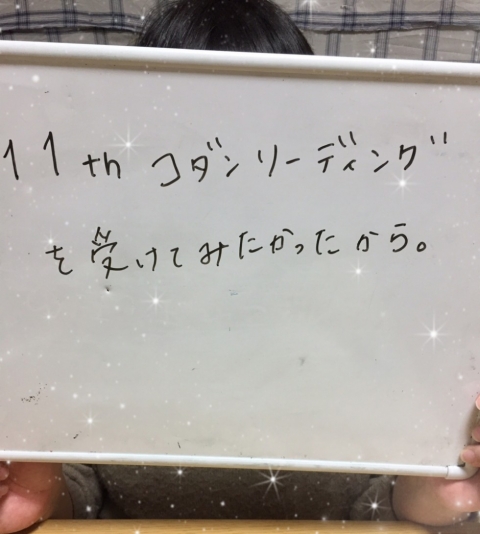 11th コダンリーディング
を受けてみたかったから。